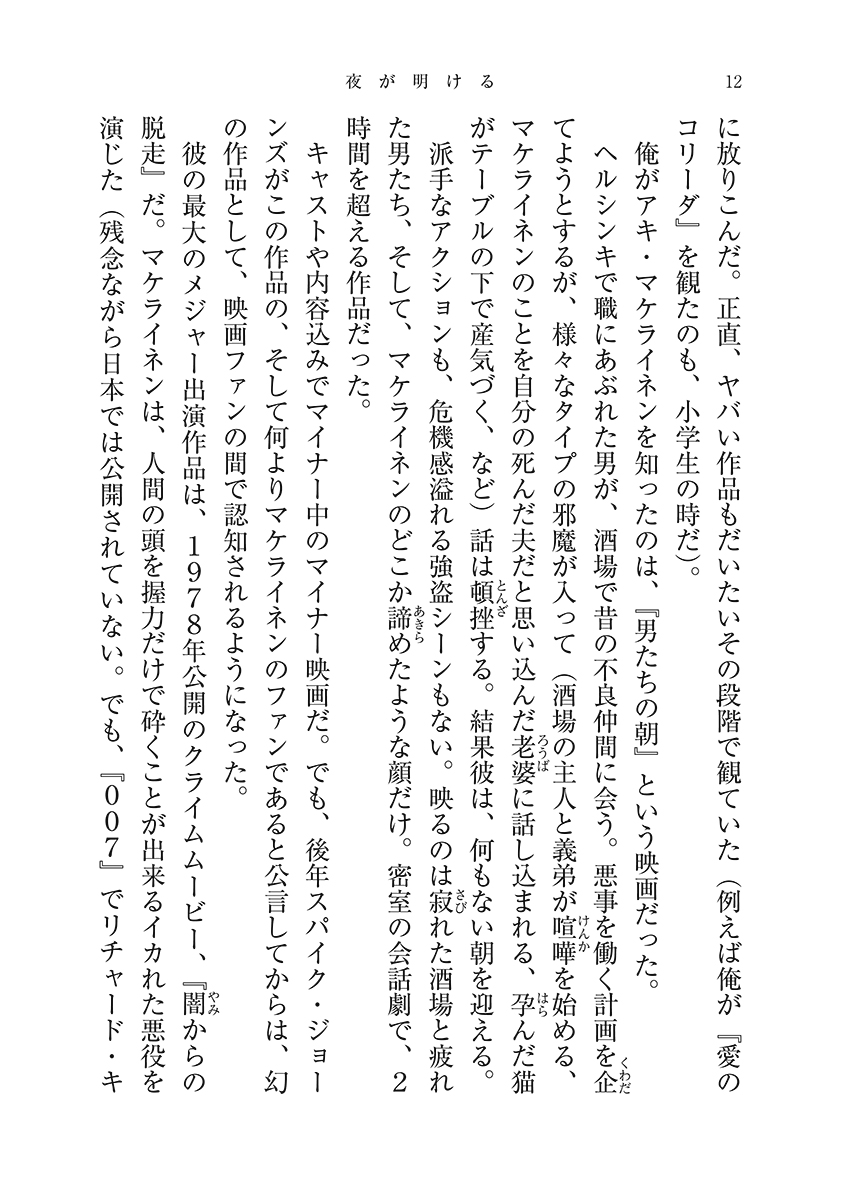 夜が明ける
12
に放りこんだ。正直、ヤバい作品もだいたいその段階で観ていた（例えば俺が『愛の
コリーダ』を観たのも、小学生の時だ）。
俺がアキ・マケライネンを知ったのは、『男たちの朝』という映画だった。
ヘルシンキで職にあぶれた男が、酒場で昔の不良仲間に会う。悪事を働く計画を企くわだ
てようとするが、様々なタイプの邪魔が入って（酒場の主人と義弟が喧嘩けんかを始める、
マケライネンのことを自分の死んだ夫だと思い込んだ老婆ろうばに話し込まれる、孕はらんだ猫
がテーブルの下で産気づく、など）話は頓挫とんざする。結果彼は、何もない朝を迎える。
派手なアクションも、危機感溢れる強盗シーンもない。映るのは寂さびれた酒場と疲れ
た男たち、そして、マケライネンのどこか諦あきらめたような顔だけ。密室の会話劇で、2
時間を超える作品だった。
キャストや内容込みでマイナー中のマイナー映画だ。でも、後年スパイク・ジョー
ンズがこの作品の、そして何よりマケライネンのファンであると公言してからは、幻
の作品として、映画ファンの間で認知されるようになった。
彼の最大のメジャー出演作品は、1978年公開のクライムムービー、『闇やみからの
脱走』だ。マケライネンは、人間の頭を握力だけで砕くことが出来るイカれた悪役を
演じた（残念ながら日本では公開されていない。でも、『007』でリチャード・キ